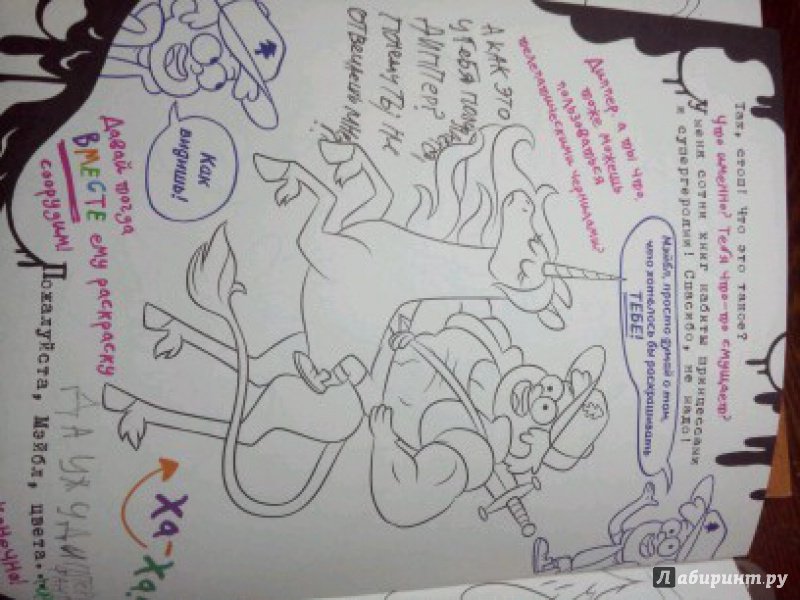 Так, стоп! Что это такое?
Что именно? Тебя что-то смущает?
У меня сотни книг набиты принцессами
и супергероями! Спасибо, не надо!
Мэйбл, просто думай о том,
что хотелось бы раскрашивать
ТЕБЕ!
Диппер, а ты что,
тоже можешь
пользоваться
телепатическими чернилами?
А КАК ЭТО
У тебя
ДИППЕР?
Почему Ты не
отвечаешь мне
?!
Как
видишь!
Давай тогда
ВМЕСТЕ ему раскраску
соорудим!
Ха-
Ха!
Пожалуйста, Мэйбл, цвета.
ДА УЖ
Конечно!
Лабиринт.ру